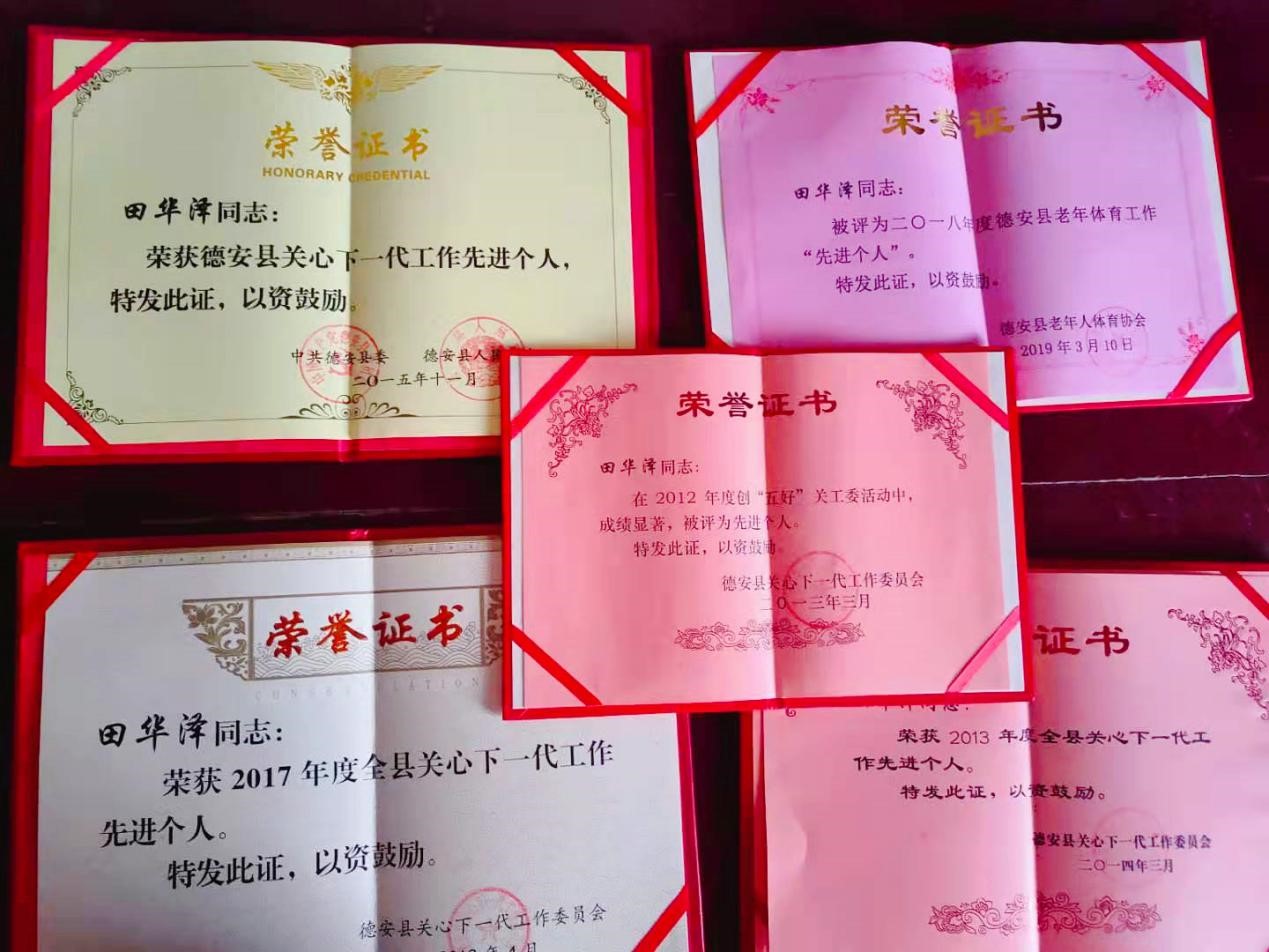 荣誉证书
HONORARY CREDENTIAL
田华泽同志：
荣获德安县关心下一代工作先进个人，
特发此证，以资鼓励。
中共德安县委 德安县人
二〇一五年十一月
荣誉证书
田华泽同志：
被评为二〇一八年度德安县老年体育工作
“先进个人”。
特发此证，以资鼓励。
德安县老年人体育协会
2019年3月10日
荣誉证书
田华泽同志：
在2012年度创“五好”关工委活动中，
成绩显著，被评为先进个人。
特发此证，以资鼓励。
德安县关心下一代工作委员会
二〇一三年三月
荣誉证书
田华泽同志：
荣获2017年度全县关心下一代工作
先进个人。
特发此证，以资鼓励。
德安县关心下一代工作委员会
年4月
证书
荣获2013年度全县关心下一代工
作先进个人。
特发此证，以资鼓励。
德安县关心下一代工作委员会
二〇一四年三月